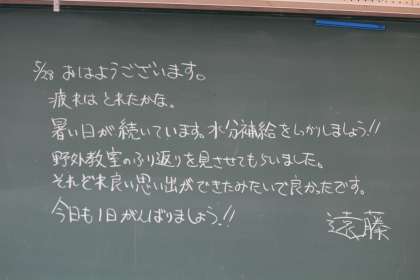 5/28 おはようございます。
疲れはとれたかな。
暑い日が続いています。水分補給をしっかりしましょう!!
野外教室のふり返りを見させてもらいました。
それぞれ良い思い出ができたみたいで良かったです。
今日も1日がんばりましょう!!
遠藤